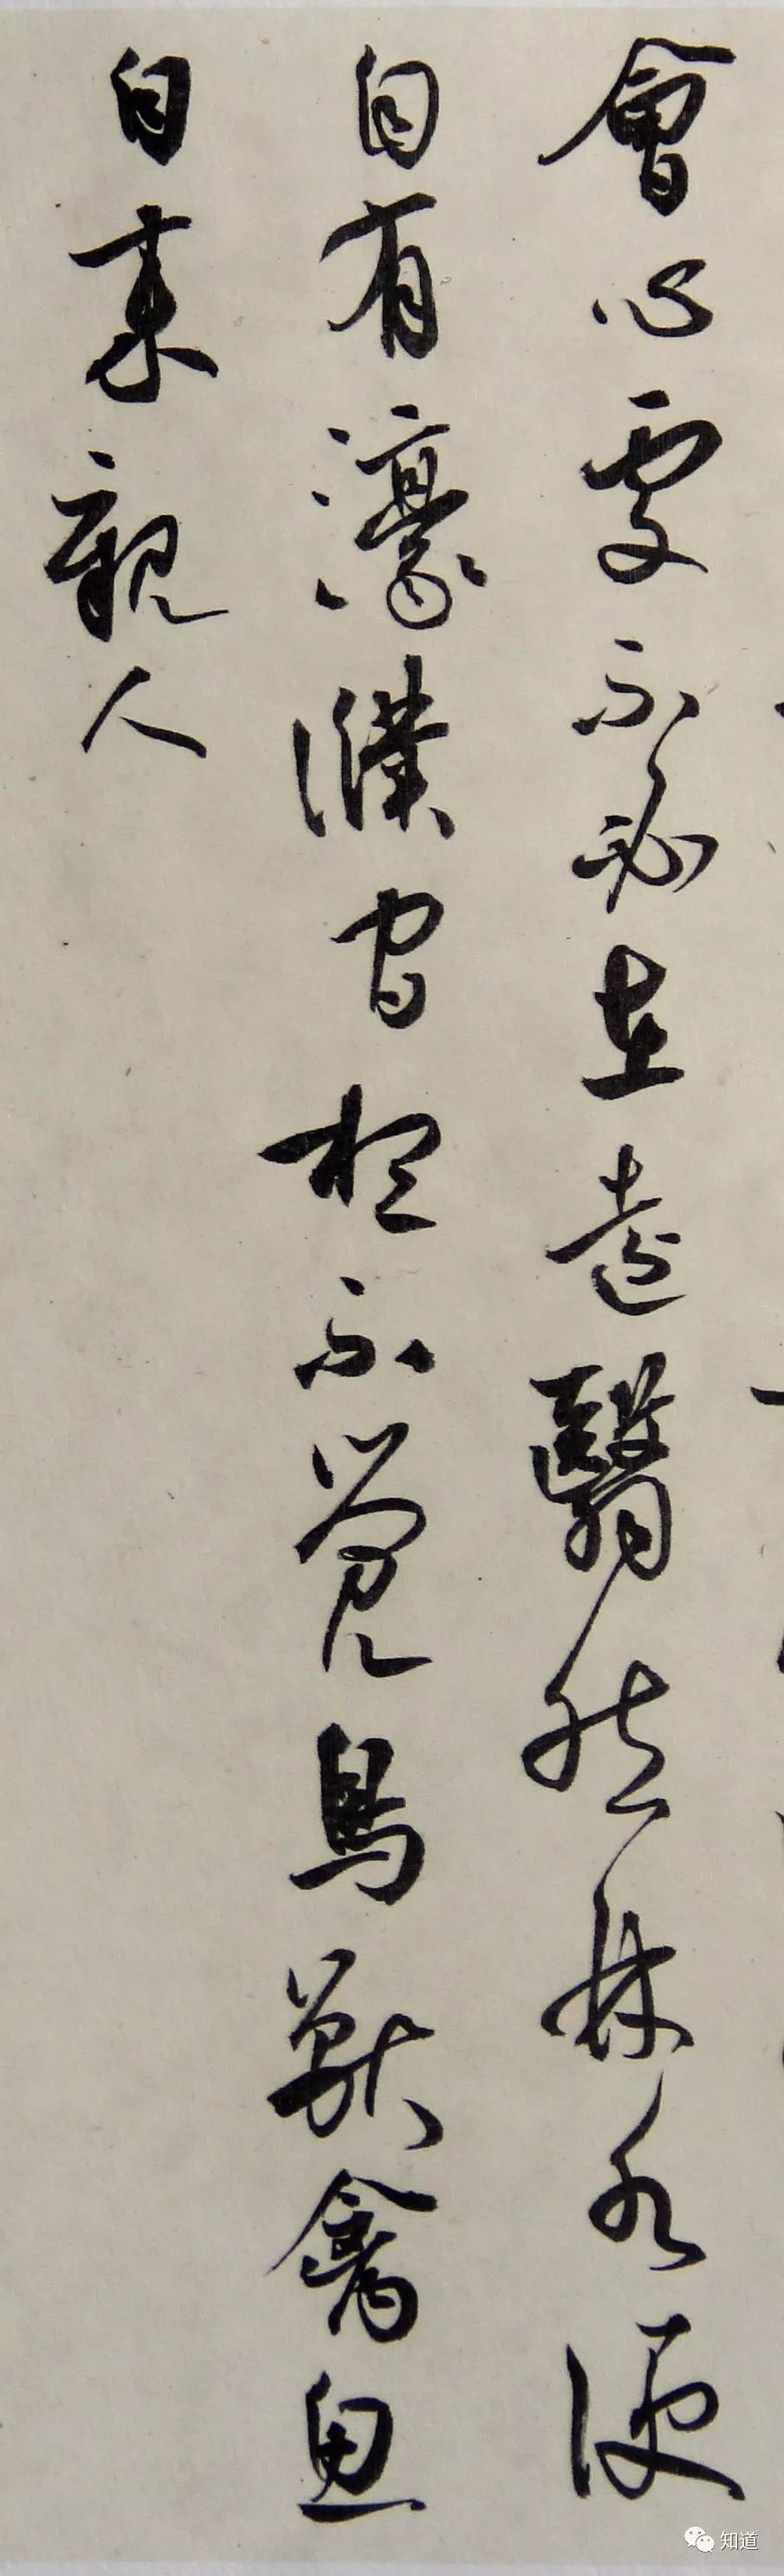 會心處不必在遠翳然林水便
自有濠濮間想不覺鳥獸禽魚
自來親人
知道